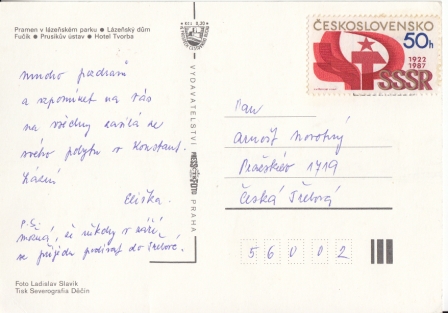 Pramen v lázeňském parku ● Lázeňský dům
Fučík ● Prusíkův ústav ● Hotel Tvorba
mnoho pozdravů
a vzpomínek na Vás
na všechny zasílá ze
svého pobytu v Konstant.
Lázní
Eliška.
P.S.
možná, že někdy v září
se přijedu podívat do Třebové.
Foto Ladislav Slavík
Tisk Severografia Děčín
VYDAVATELSTVÍ
PRAHA
ČESKOSLOVENSKO
50h
1922
1987
SSSR
Pan
Arnošt Novotný
Pražské 1719
Česká Třebová
56002